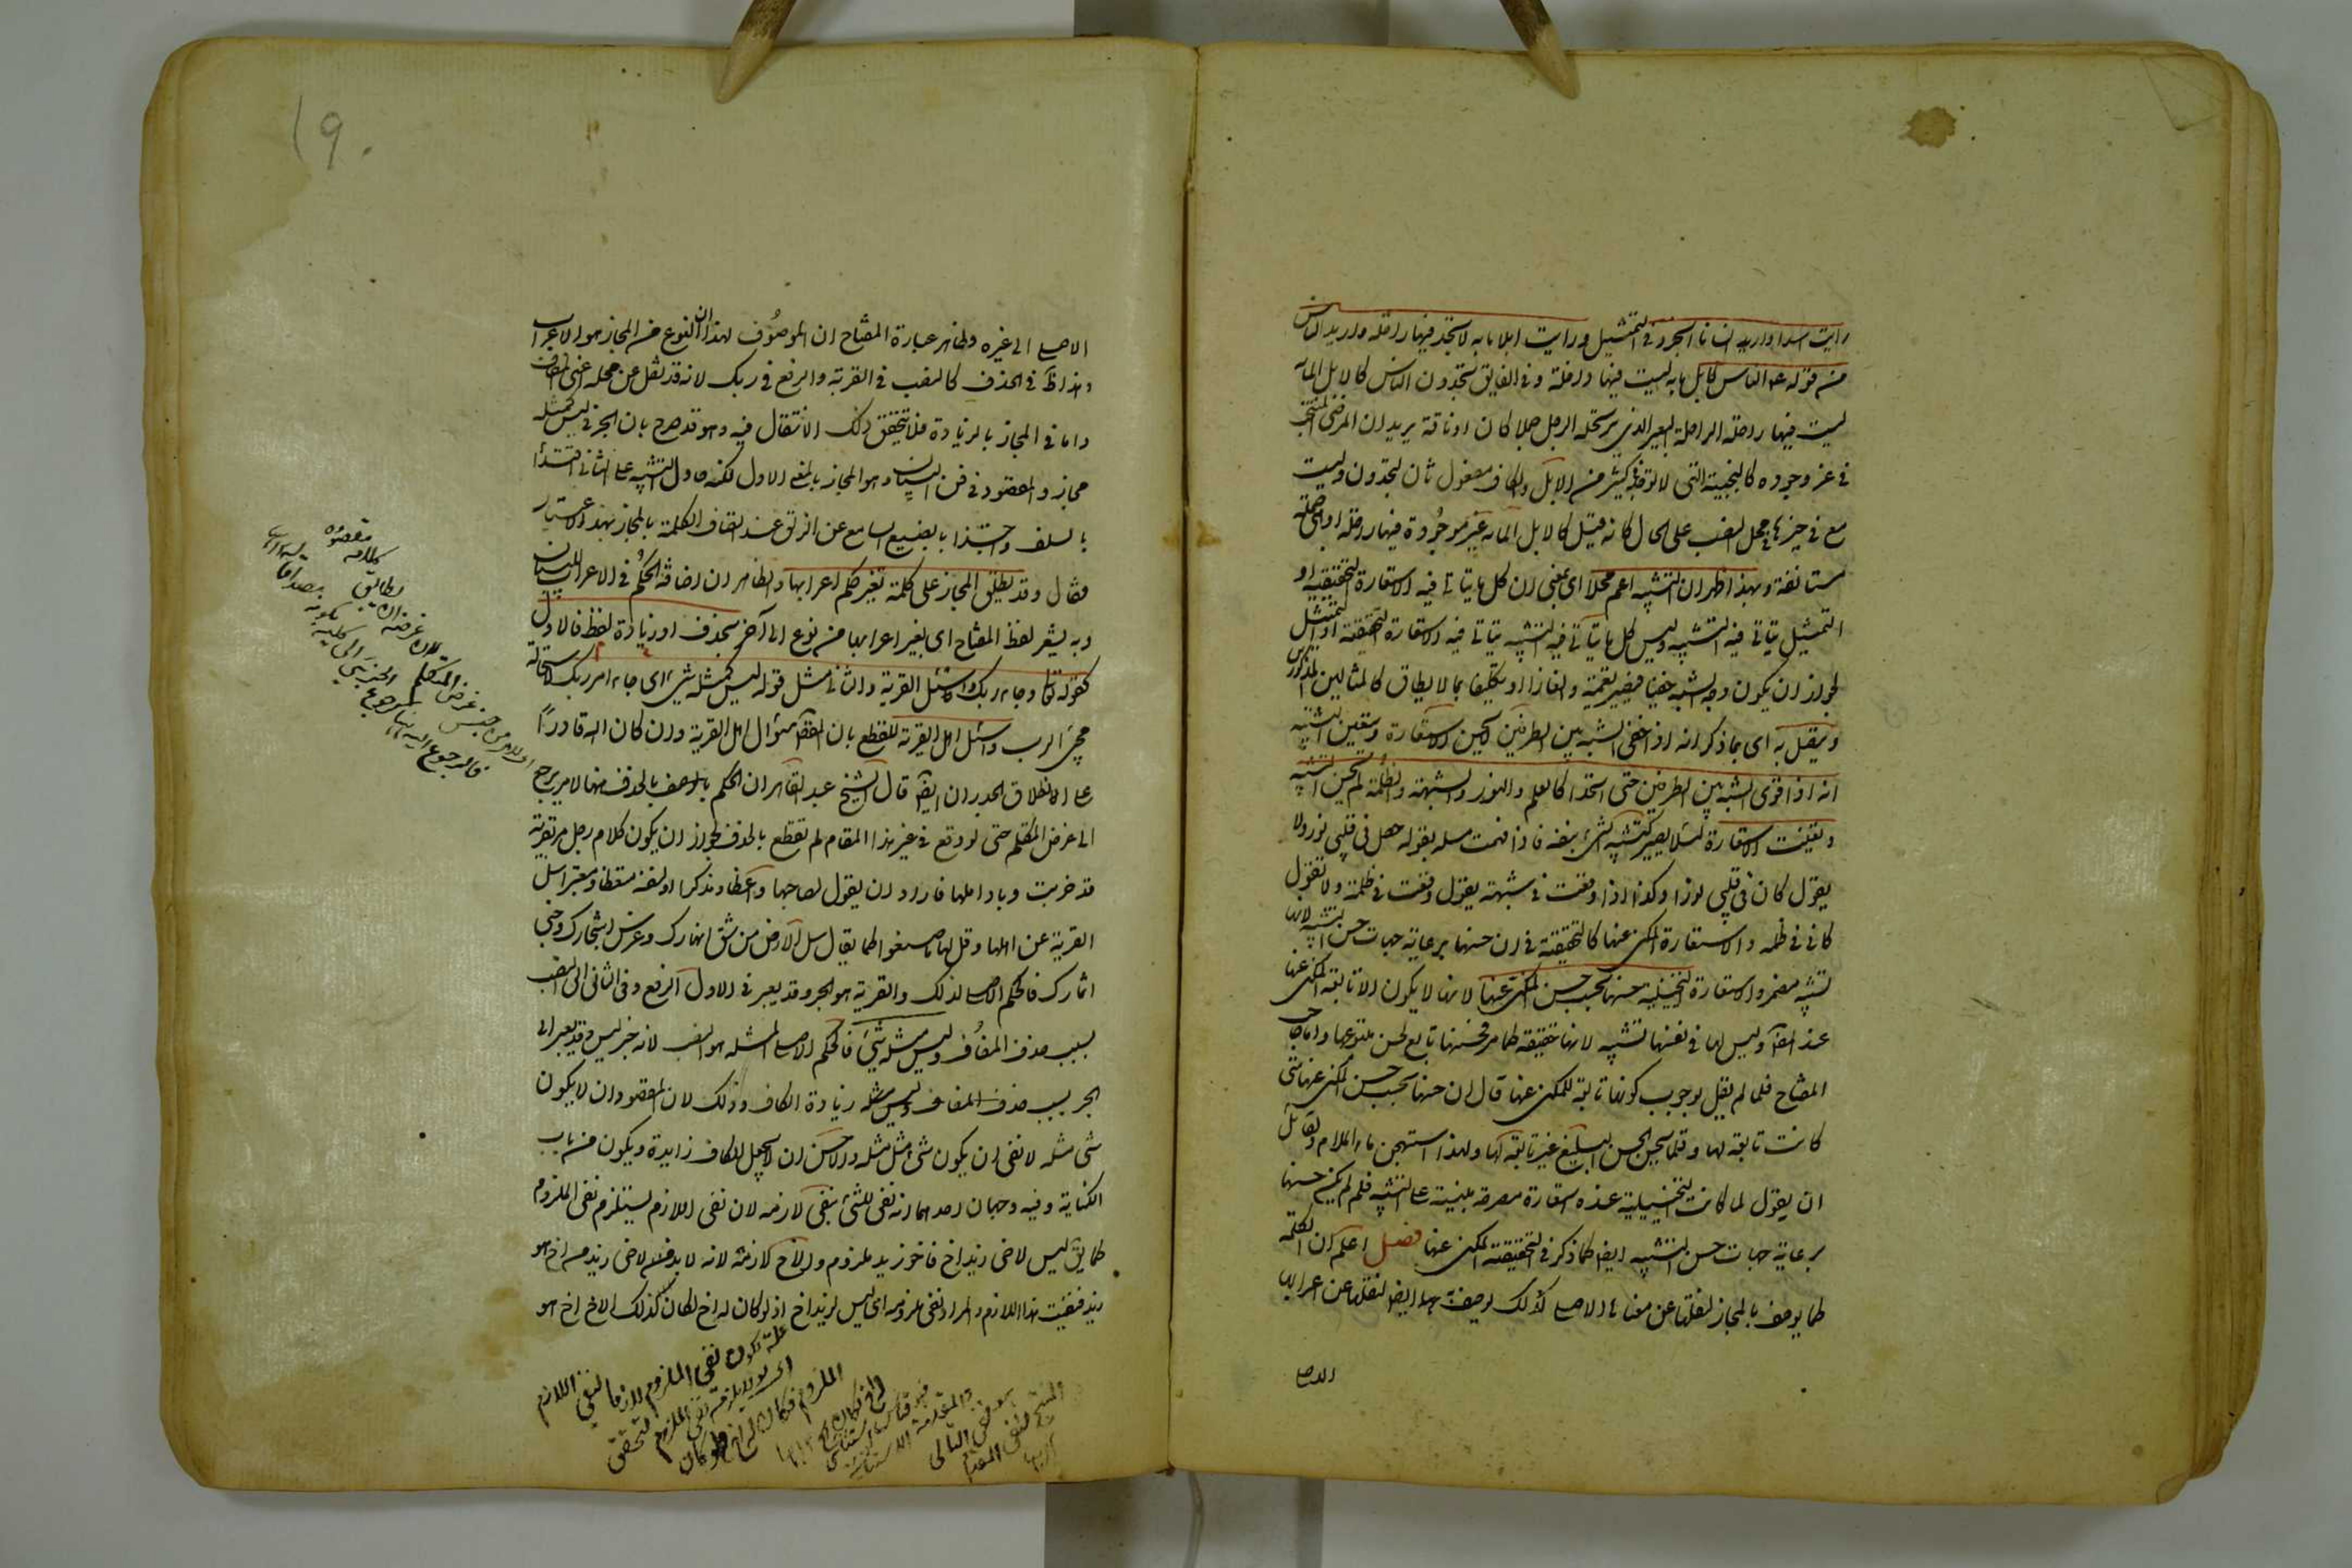 رايت اسدا واريد انسانا ابخر وفي التمثيل ورايت ابلا مايه لا تجد فيها راحلة واريد الناس
من قوله عم الناس كابل مايه ليست فيها راحلة وفي الفايق تجدون الناس كالابل الماية
ليست فيها راحلة الراحلة البعير الذي يرتحله الرجل جملا كان او ناقة يريد ان المرضى المنتخب
في عز وجوده كالنجيبة التي لا توجد في كثير من الابل والكاف مفعول ثان لتجدون وليست
مع ما في حيزها في محل النصب على الحال كانه قيل كالابل الماية غير موجودة فيها راحلة او هي جملة
مستانفة وبهذا ظهر ان التشبيه اعم محلا اى بمعنى ان كل ما يتاتى فيه الاستعارة التحقيقية او
التمثيل يتاتى فيه التشبيه وليس كل ما يتاتى فيه التشبيه يتاتى فيه الاستعارة التحقيقية او التمثيل
لجواز ان يكون وجه الشبه خفيا فيصير تعمية والغازا او تكليفا بما لا يطاق كالمثالين المذكورين
ويتصل به اى بما ذكر انه اذا خفي الشبه بين الطرفين لا تحسن الاستعارة وتتعين التشبيه
انه اذا قوى الشبه بين الطرفين حتى اتحدا كالعلم والنور والشبهة والظلمة لم يحسن التشبيه
وتعينت الاستعارة لئلا يصير كتشبيه الشئ بنفسه فاذا فهمت مسئلة تقول حصل في قلبي نور ولا
تقول كان في قلبي نورا وكذا اذا وقعت في شبهة تقول وقعت في ظلمة ولا تقول
كاني في ظلمة والاستعارة المكنى عنها كالتحقيقية في ان حسنها برعاية جهات حسن التشبيه لانها
تشبيه مضمر والاستعارة التخييلية حسنها بحسب حسن المكنى عنها لانها لا يكون الا تابعة للمكنى عنها
عند المص وليس لها في نفسها تشبيه لانها حقيقة كما مر فحسنها تابع لحسن متبوعها واما صاحب
المفتاح فلما لم يقل بوجوب كونها تابعة للمكنى عنها قال ان حسنها بحسب حسن المكنى عنها متى
كانت تابعة لها وقلما يحسن الحسن البليغ غير تابعة لها ولهذا استهجن ماء الملام ولقائل
ان يقول لما كانت التخييلية عنده استعارة مصرحة مبنية على التشبيه فلم لم يكن حسنها
برعاية جهات حسن التشبيه ايضا كما ذكر في التحقيقية والمكنى عنها فصل اعلم ان الكلمة
كما يوصف بالمجاز لنقلها عن معناها الاصلى كذلك يوصف به ايضا لنقلها عن اعرابها
الاصلى
١٩٠
الاصلى الى غيره وظاهر عبارة المفتاح ان الموصوف بهذا النوع من المجاز هو الاعراب
وهذا ظ في الحذف كالنصب في القرية والرفع في ربك لانه قد نقل عن محله اعنى المضاف
واما في المجاز بالزيادة فلا يتحقق ذلك الانتقال فيه وهو قد صرح بان الجر في ليس كمثله
مجاز والمقصود في فن البيان هو المجاز بالمعنى الاول لكنه حاول التنبيه على الثاني اقتداء
بالسلف واجتذابا بضبع السامع عن الزلق عند اتصاف الكلمة بالمجاز بهذا الاعتبار
فقال وقد يطلق المجاز على كلمة تغير حكم اعرابها والظاهر ان اضافة الحكم الى الاعراب للبيان
وبه يشعر لفظ المفتاح اى تغير اعرابها من نوع الى آخر بحذف او زيادة لفظ فالاول
كقوله تعا وجاء ربك واسئل القرية والثاني مثل قوله ليس كمثله شئ اى جاء امر ربك لاستحالة
مجئ الرب واسئل اهل القرية للقطع بان المقصود سؤال اهل القرية وان كان الله قادرا
على الانطاق الجدران ايضا قال الشيخ عبد القاهر ان الحكم بالحذف ههنا لامر يرجع
الى غرض المتكلم حتى لو وقع في غير هذا المقام لم تقطع بالحذف لجواز ان يكون كلام رجل مر بقرية
قد خربت وباد اهلها فاراد ان يقول لصاحبها واعظا ومذكرا او لنفسه متعظا ومعتبرا سل
القرية عن اهلها وقل لها ما صنعوا كما يقال سل الارض من شق انهارك وغرس اشجارك وجنى
اثمارك فالحكم الاصلى لربك والقرية هو الجر وقد تغير في الاول الى الرفع وفي الثاني الى النصب
بسبب حذف المضاف وليس مثله شئ فالحكم الاصلى لمثله هو النصب لانه خبر ليس وقد تغير الى
الجر بسبب زيادة الكاف وذلك لان المقصود ان لا يكون
شئ مثله لا نفى ان يكون شئ مثل مثله والاحسن ان لا يجعل الكاف زايدة ويكون من باب
الكناية وفيه وجهان احدهما انه نفى للشئ بنفى لازمه لان نفى اللازم يستلزم نفى الملزوم
كما يق ليس لاخى زيد اخ فاخو زيد ملزوم والاخ لازمه لانه لا بد لاخى زيد من اخ هو
زيد فنفيت هذا اللازم والمراد نفى ملزومه اى ليس لزيد اخ اذ لو كان له اخ لكان لذلك الاخ اخ هو